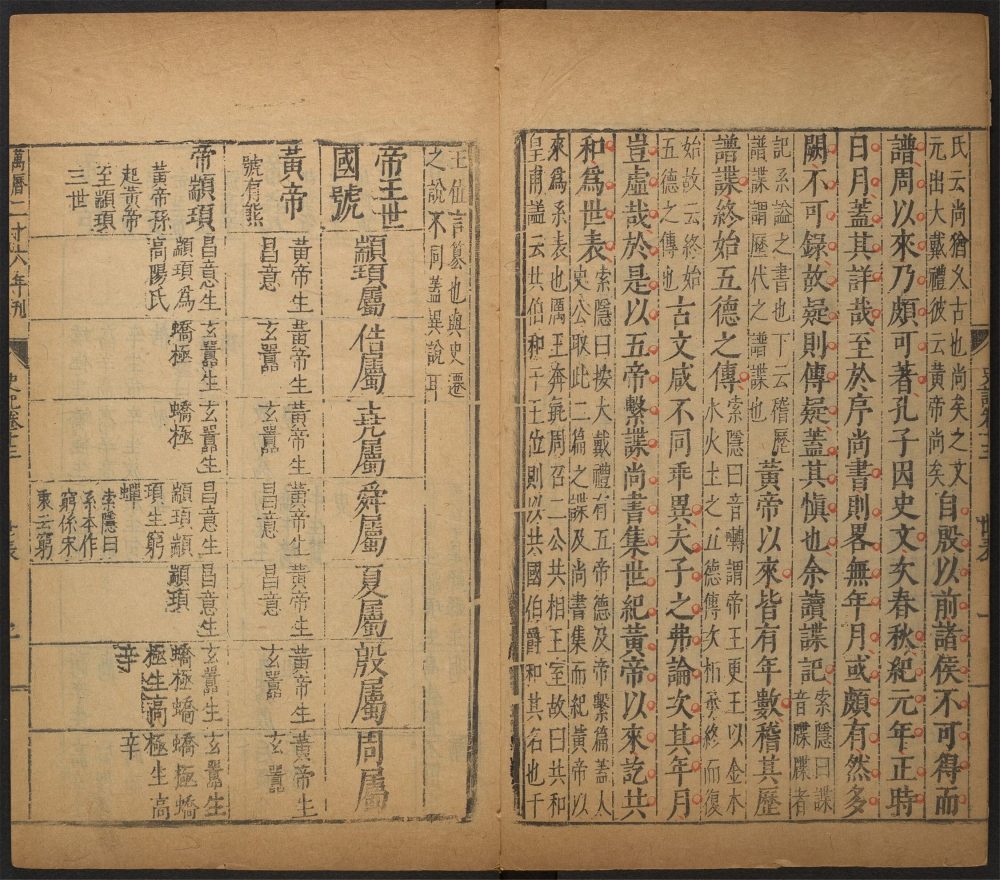 氏云尚猶久古也尚矣之文
元出大戴禮彼云黃帝尚矣
自殷以前諸侯不可得而
譜周以來乃頗可著孔子因史文次春秋紀元年正時
日月蓋其詳哉至於序尚書則畧無年月或頗有然多
闕不可錄故疑則傳疑蓋其慎也余讀諜記
索隱曰諜
音牒牒者
記系謚之書也下云稽歷
譜諜謂歷代之譜諜也
黃帝以來皆有年數稽其歷
譜諜終始五德之傳
索隱曰音轉謂帝王更王以金木
水火土之五德傳次相承終而復
始故云終始
五德之傳也
古文咸不同乖異夫子之弗論次其年月
豈虛哉於是以五帝繫諜尚書集世紀黃帝以來訖共
和為世表
索隱曰按大戴禮有五帝德及帝繫篇蓋太
史公取此二篇之諜及尚書集而紀黃帝以
來為系表也
厲王奔彘周召二公共相王室故曰共和
皇甫謐云共伯和干王位則以共國伯爵和其名也干
王位言篡也與史遷
之說不同蓋異說耳
帝王世
國號
顓頊屬
俈屬
堯屬
舜屬
夏屬
殷屬
周屬
黃帝
號有熊
黃帝生
昌意
黃帝生
玄囂
黃帝生
玄囂
黃帝生
昌意
黃帝生
昌意
黃帝生
玄囂
黃帝生
玄囂
帝顓頊
黃帝孫
起黃帝
至顓頊
三世
昌意生
顓頊為
高陽氏
玄囂生
蟜極
玄囂生
蟜極
昌意生
顓頊顓
頊生窮
蟬
索隱曰
系本作
窮係宋
衷云窮
昌意生
顓頊
玄囂生
蟜極蟜
極生高
辛
玄囂生
蟜極蟜
極生高
辛
萬曆二十六年刊
史記卷十三
世表